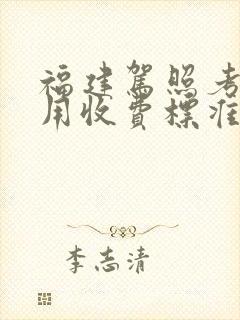 福建駕照考
用收費標准
李志清